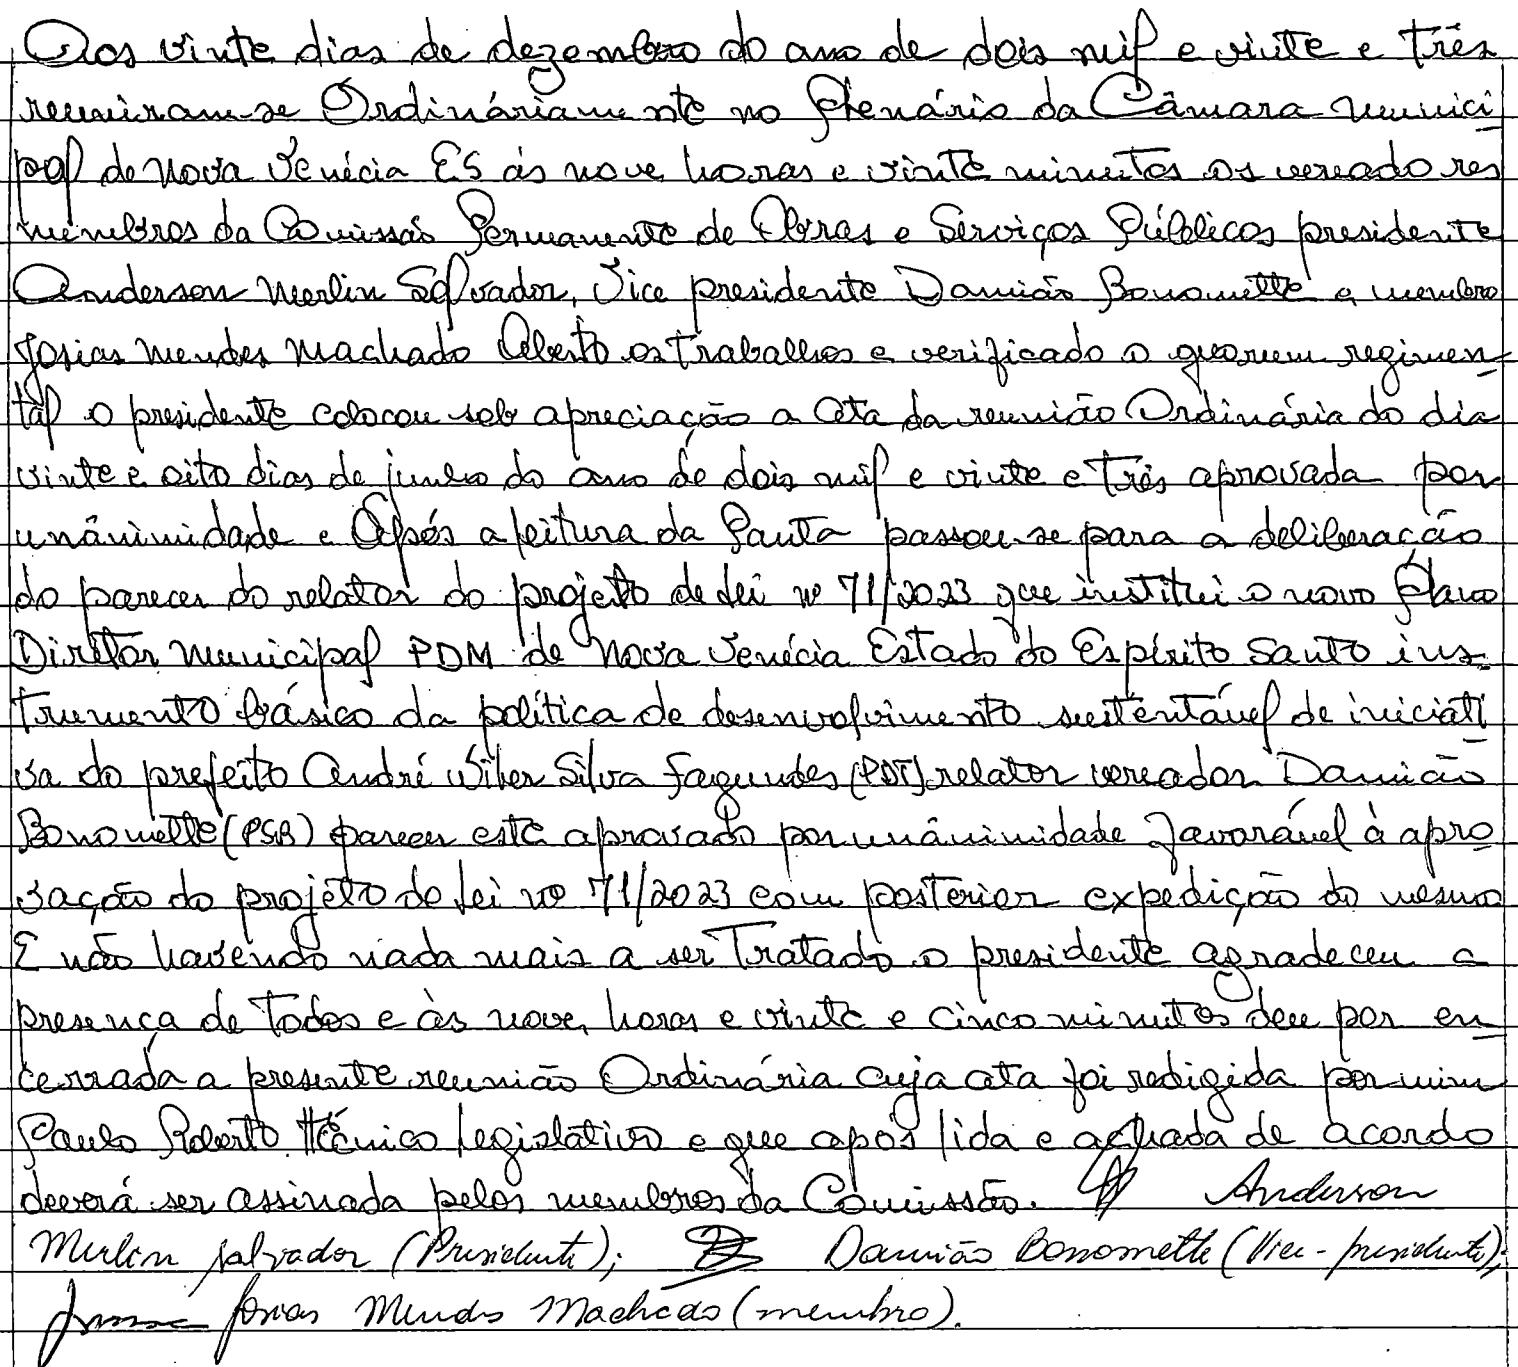 Aos vinte dias de dezembro do ano de dois mil e vinte e três
reuniram-se Ordináriamente no Plenário da Câmara Munici
pal de Nova Venécia ES às nove horas e vinte minutos os vereadores
membros da Comissão Permanente de Obras e Serviços Públicos presidente
Anderson Merlin Salvador, Vice presidente Damião Bonomette e membro
Josias Mendes Machado Aberto os trabalhos e verificado o quorum regimen-
tal o presidente colocou sob apreciação a Ata da reunião Ordinária do dia
vinte e oito dias de junho do ano de dois mil e vinte e três aprovada por
unânimidade e Após a leitura da Pauta passou-se para a deliberação
do parecer do relator do projeto de Lei nº 71/2023 que institui o novo Plano
Diretor Municipal PDM de Nova Venécia Estado do Espírito Santo ins-
trumento básico da política de desenvolvimento sustentável de iniciati
va do prefeito André Wiler Silva Fagundes (PDT) relator vereador Damião
Bonomette (PSB) parecer este aprovado por unânimidade Favorável à apro
vação do projeto de Lei nº 71/2023 com posterior expedição do mesmo
E não havendo nada mais a ser Tratado o presidente agradeceu a
presença de todos e às nove, horas e vinte e cinco minutos deu por en
cerrada a presente reunião Ordinária cuja ata foi redigida por mim
Paulo Roberto Técnico Legislativo e que após lida e achada de acordo
deverá ser assinada pelos membros da Comissão. Anderson
Merlin Salvador (Presidente); Damião Bonomette (Vice-presidente);
Josias Mendes Machado (membro).